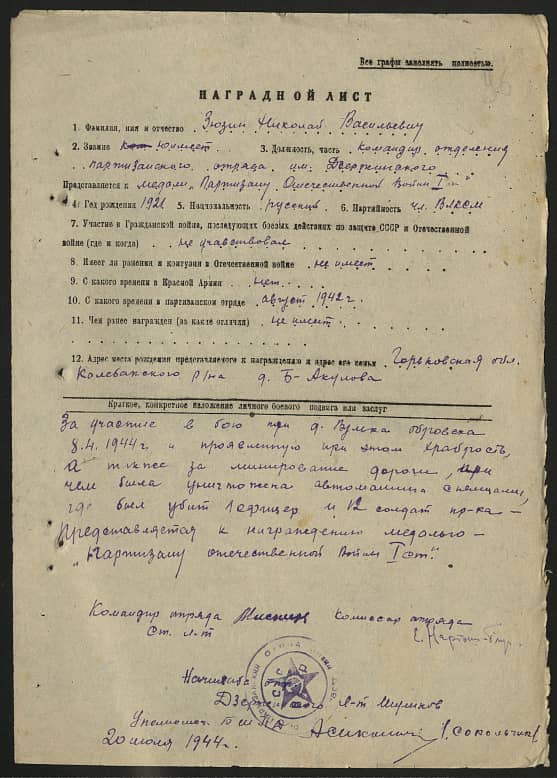 Все графы заполнять полностью.
НАГРАДНОЙ ЛИСТ
1. Фамилия, имя и отчество Зюзин Николай Васильевич
2. Звание не имеет 3. Должность, часть командир отделения
партизанского отряда им. Дзержинского
Представляется к медали "Партизану Отечественной Войны I ст"
4. Год рождения 1921 5. Национальность русский 6. Партийность чл. ВЛКСМ
7. Участие в Гражданской войне, последующих боевых действиях по защите СССР и Отечественной
войне (где и когда) не учавствовал
8. Имеет ли ранения и контузии в Отечественной войне не имеет
9. С какого времени в Красной Армии нет
10. С какого времени в партизанском отряде август 1942 г.
11. Чем ранее награжден (за какие отличия) не имеет
12. Адрес места рождения представляемого к награждению и адрес его семьи Горьковская обл.
р/на д. Б-Акулова
Краткое, конкретное изложение личного боевого подвига или заслуг
За участие в бою при д.
8.4.1944 г и проявленную при этом храбрость,
а также за минирование дороги, при
чем была уничтожена автомашина с немцами,
где был убит 1 офицер и 12 солдат пр-ка –
Представляется к награждению медалью –
"Партизану отечественной Войны I ст."
Командир отряда Комиссар отряда
Ст. л-т
Дзержинского л-т
Уполномоч.
20 июля 1944 г.